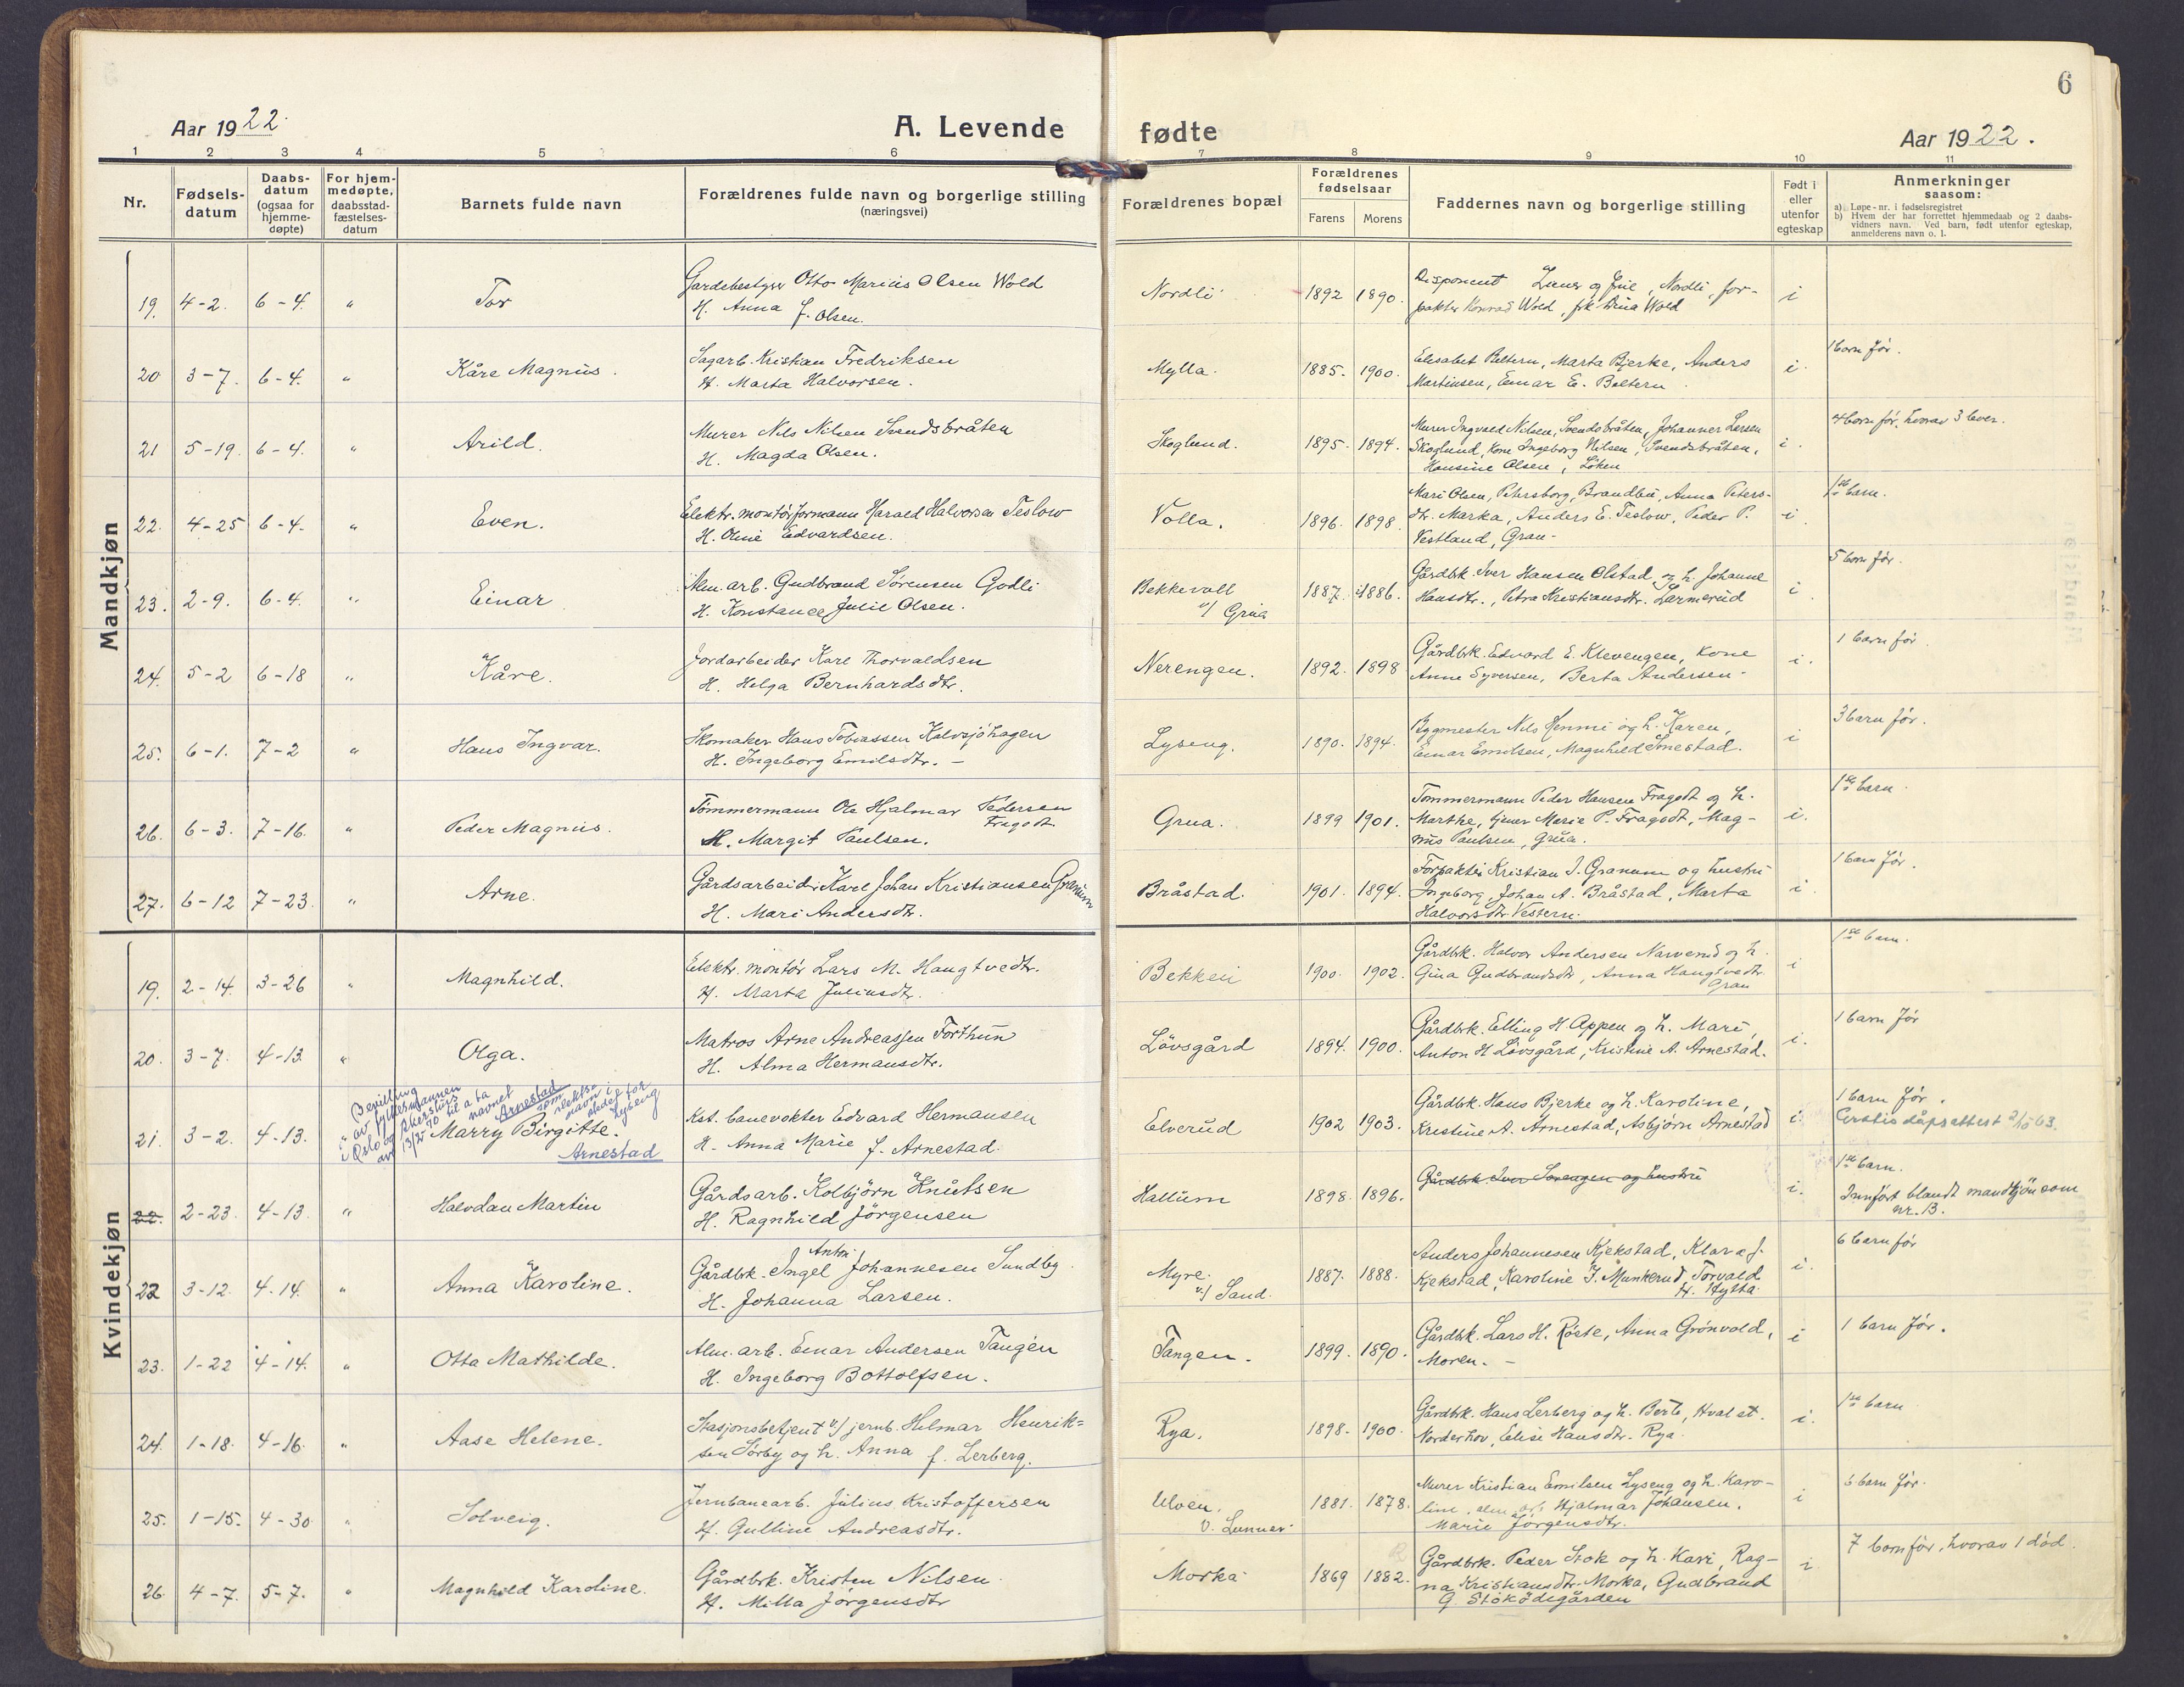 Aar 1922.
A. Levende
fødte
Aar 1922.
6
1 2 3 4 5 6 7 8 9 10 11
Nr.
Fødsels-
datum
Daabs-
datum
(ogsaa for
hjemme-
døpte)
For hjem-
medøpte,
daabsstad-
fæstelses-
datum
Barnets fulde navn
Forældrenes fulde navn og borgerlige stilling
(næringsvei)
Forældrenes bopæl
Forældrenes
fødselsaar
Farens Morens
Faddernes navn og borgerlige stilling
Født i
eller
utenfor
egteskap
Anmerkninger
saasom:
a) Løpe-nr. i fødselsregistret
b) Hvem der har forrettet hjemmedaab og 2 daabs-
vidners navn. Ved barn, født utenfor egteskap,
anmelderens navn o. l.
Mandkjøn
19. 4-2. 6-4. " Tor
Gardebestyrer Otto Marius Olsen Wold
H. Anna f. Olsen.
Nordli 1892 1890.
Disponent og frue, Nordli, for-
pakter Konrad Wold, frk Dina Wold
i
20 3-7. 6-4. " Kåre Magnus.
Sagarb. Kristian Fredriksen
H. Marta Halvorsen.
Mylla. 1885. 1900.
Elisabet Beltern, Marta Bjerke, Anders
Martinsen, Einar E. Beltern
i
1 barn før.
21 5-19. 6-4. " Arild.
Murer Nils Nilsen Svendsbråten
H. Magda Olsen.
Skoglund. 1895. 1894.
Murer Ingvald Nilsen, Svendsbråten, Johannes Larsen
Skoglund, Kone Ingeborg Nilsen, Svendsbråten,
Hansine Olsen, Løken
i.
4 barn før, hvorav 3 lever.
22. 4-25 6-4. " Even.
Elektr. montørformann Harald Halvorsen Teslow
H. Oline Edvardsen.
Volla. 1896. 1898.
Mari Olsen, Petersborg, Brandbu, Anna Peters-
dtr. Marka, Anders E. Teslow, Peder P.
Vestland, Gran-
i
1ste barn.
23. 2-9. 6-4. " Einar
Alm. arb. Gudbrand Sørensen Godli
H. Konstance Julie Olsen.
Bekkevoll
v/ Grua 1887. 1886.
Gårdbk. Iver Hansen Olstad og h. Johanne
Hansdtr., Petra Kristiansdtr. Larmerud
i
5 barn før.
24. 5-2 6-18 " Kåre.
Jordarbeider Karl Thorvaldsen
H. Helga Bernhardsdtr.
Nerengen. 1892. 1898
Gårdbrk. Edvard E. Klevengen, Kone
Anne Syversen, Berta Andersen-
i.
1 barn før
25. 6-1. 7-2 " Hans Ingvar.
Skomaker Hans Tobiassen Kalvsjøhagen
H. Ingeborg Emilsdtr. -
Lyseng. 1890. 1894.
Byggmester Nils Henmi og h. Karen,
Einar Emilsen, Magnhild Smestad.
i
3 barn før.
26. 6-3. 7-16. " Peder Magnus.
Tømmermann Ole Hjalmar Pedersen
Fragodt
H. Margit Paulsen.
Grua. 1899 1901.
Tømmermann Peder Hansen Fragodt og h.
Marthe, tjener Marie P. Fragodt, Mag-
nus Paulsen, Grua.
i.
1ste barn.
27. 6-12 7-23. " Arne.
Gårdsarbeider Karl Johan Kristiansen Granum
H. Mari Andersdtr.
Bråstad. 1901. 1894.
Forpakter Kristian J. Granum og hustru
Ingeborg, Johan A. Bråstad, Marta
Halvorsdtr Vestern.
i.
1 barn før.
Kvindekjøn
19. 2-14. 3-26 " Magnhild.
Elektr. montør Lars M. Haugtvedtr.
H. Marta Juliusdtr.
Bekken 1900. 1902.
Gårdbrk. Halvor Andersen Narverud og h.
Gina Gudbrandsdtr, Anna Haugtvedtr
Gran
i
1ste barn.
20. 3-7. 4-13 " Olga.
Matros Arne Andreassen Forthun
H. Alma Hermansdtr.
Løvsgård 1894. 1900.
Gårdbrk. Elling H Appen og h. Mari,
Anton H Løvsgård, Kristine A. Arnestad.
i.
1 barn før
Bevilling
av fylkesmannen
i Oslo og Akershus
av 13/2570 til a ta
navnet
Arnestad
som slekts-
navn i
stedet for
Lyseng
21. 3-2. 4-13. " Marry Birgitte.
Arnestad
Kst. banevokter Edvard Hermansen
H. Anna Marie f. Arnestad.
Elverud 1902 1903.
Gårdbrk. Hans Bjerke og h. Karoline,
Kristine A. Arnestad, Asbjørn Arnestad
i.
1 barn før.
Gratis dåpsattest 2/10 63.
22. 2-23. 4-13. " Halvdan Martin
Gårdsarb. Kolbjørn Knutsen
H. Ragnhild Jørgensen
Hallum 1898. 1896.
Gårdbrk. Iver Sorengen og hustru
i.
1ste barn.
Innført blandt mandkjøn som
nr. 13.
22 3-12. 4-14. " Anna Karoline.
Anton
Gårdbrk. Ingel Johannesen Sundby.
H. Johanna Larsen.
Myre.
v/ Sand. 1887. 1888.
Anders Johannesen Kjekstad, Klara J.
Kjekstad, Karoline J. Munkerud, Torvald
H. Hytta.
i.
6 barn før
23. 1-22 4-14. " Otta Mathilde.
Alm. arb. Einar Andersen Tangen
H. Ingeborg Bottolfsen.
Tangen. 1899. 1890.
Gårdbk. Lars H. Røste, Anna Grønvold,
Moren. -
i
1 barn før.
24. 1-18. 4-16. " Aase Helene.
Stasjonsbetjent v/ jernb. Hilmar Henrik=
sen Sørby og h. Anna f. Lerberg.
Rya. 1898. 1900.
Gårdbrk. Hans Lerberg og h. Berte, Hval st.
Norderhov, Elise Hansdtr. Rya.
i.
1ste barn
25. 1-15. 4-30 " Solveig.
Jernbanearb. Julius Kristoffersen
H. Gulline Andreasdtr.
Ulven.
v. Lunner. 1881. 1878.
Murer Kristian Emilsen Lyseng og h. Karo-
line, alm. arb. Hjalmar Johansen,
Marie Jørgensdtr.
i
6 barn før.
26. 4-7. 5-7. " Magnhild Karoline.
Gårdbrk. Kristen Nilsen.
H. Milla Jørgensdtr
Morka 1869 1882.
Gårdbrk. Peder Stok og h. Kari, Rag-
na Kristiansdtr. Morka, Gudbrand
G. Stokødegården
i
7 barn før, hvorav 1 død.